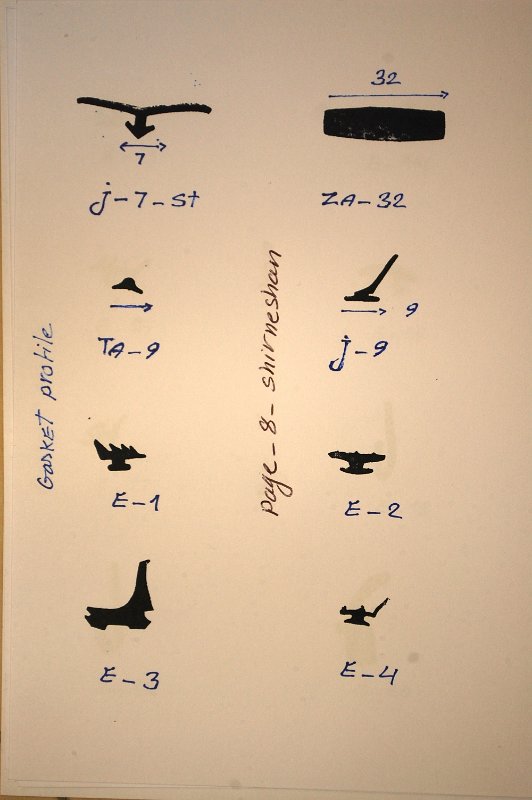 32
7
j-7-St
ZA-32
9
TA-9
j-9
Gasket profile
page-8-shirneshan
E-1
E-2
E-3
E-4